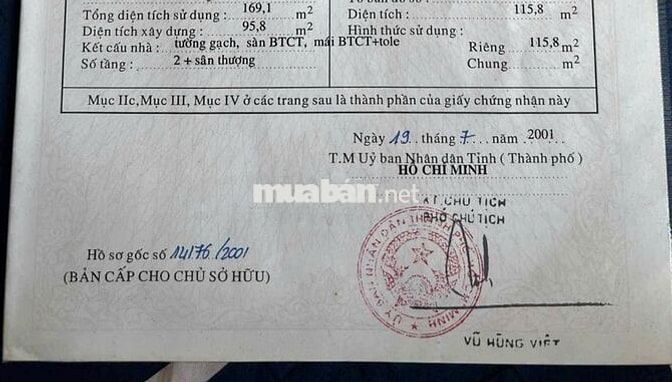 Tổng diện tích sử dụng : 169,1 m2
Diện tích xây dựng : 95,8 m2
Kết cấu nhà : tường gạch, sàn BTCT, mái BTCT+tole
Số tầng : 2 + sân thượng
Diện tích : 115,8 m2
Hình thức sử dụng :
Riêng : 115,8 m2
Chung : m2
Mục IIc, Mục III, Mục IV ở các trang sau là thành phần của giấy chứng nhận này
Ngày 19 tháng 7 năm 2001
T.M Uỷ ban Nhân dân Tỉnh ( Thành phố )
HỒ CHÍ MINH
muaban.net
KT. CHỦ TỊCH
PHÓ CHỦ TỊCH
Hồ sơ gốc số 14176/2001
(BẢN CẤP CHO CHỦ SỞ HỮU)
ỦY BAN NHÂN DÂN THÀNH PHỐ
MINH
VŨ HÙNG VIỆT